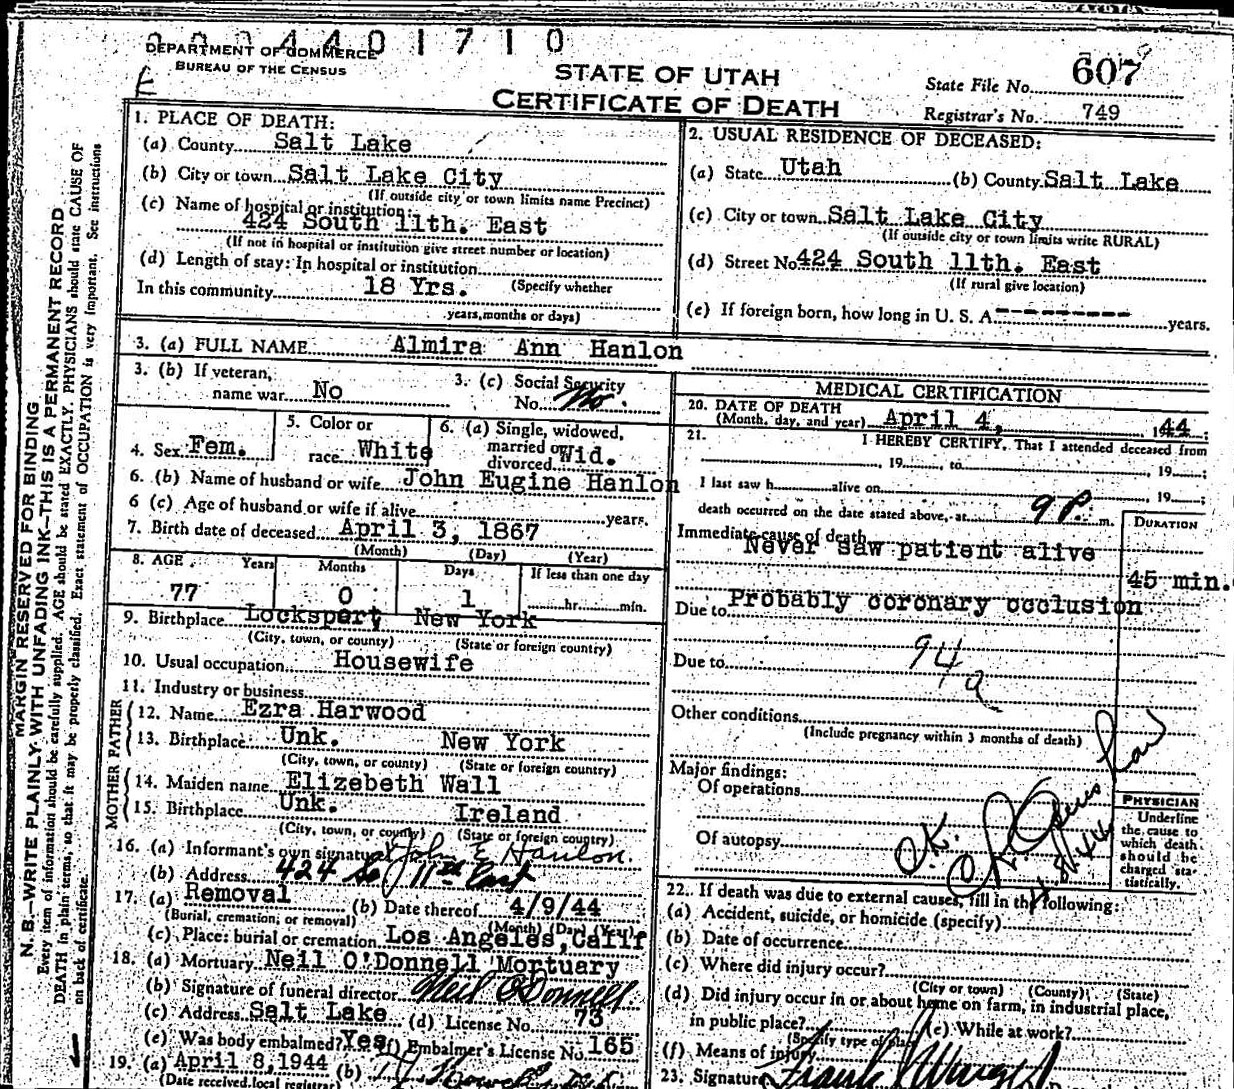 0 0 0 4 4 0 1 7 1 0
DEPARTMENT OF COMMERCE
BUREAU OF THE CENSUS
STATE OF UTAH
CERTIFICATE OF DEATH
State File No. 607
Registrar's No. 749
1. PLACE OF DEATH:
(a) County Salt Lake
(b) City or town Salt Lake City
(If outside city or town limits name Precinct)
(c) Name of hospital or institution:
424 South 11th. East
(If not in hospital or institution give street number or location)
(d) Length of stay: In hospital or institution
In this community 18 Yrs. (Specify whether
years, months or days)
2. USUAL RESIDENCE OF DECEASED:
(a) State Utah (b) County Salt Lake
(c) City or town Salt Lake City
(If outside city or town limits write RURAL)
(d) Street No 424 South 11th. East
(If rural give location)
(e) If foreign born, how long in U. S. A. --------- years.
3. (a) FULL NAME Almira Ann Hanlon
3. (b) If veteran,
name war No
3. (c) Social Security
No. No.
4. Sex Fem.
5. Color or
race White
6. (a) Single, widowed,
married or
divorced Wid.
6. (b) Name of husband or wife John Eugine Hanlon
6 (c) Age of husband or wife if alive years.
7. Birth date of deceased April 3, 1867
(Month) (Day) (Year)
8. AGE Years Months Days If less than one day
77 0 1 hr. min.
9. Birthplace Locksport New York
(City, town, or county) (State or foreign country)
10. Usual occupation Housewife
11. Industry or business
FATHER
12. Name Ezra Harwood
13. Birthplace Unk. New York
(City, town, or county) (State or foreign country)
MOTHER
14. Maiden name Elizebeth Wall
15. Birthplace Unk. Ireland
(City, town, or county) (State or foreign country)
16. (a) Informant's own signature John E Hanlon.
(b) Address 424 So 11th East
17. (a) Removal (b) Date thereof 4/9/44
(Burial, cremation, or removal) (Month) (Day) (Year)
(c) Place: burial or cremation Los Angeles, Calif
18. (a) Mortuary Neil O'Donnell Mortuary
(b) Signature of funeral director Neil O'Donnell
(c) Address Salt Lake (d) License No. 73
(e) Was body embalmed? Yes (f) Embalmer's License No. 165
19. (a) April 8, 1944 (b)
(Date received local registrar)
MEDICAL CERTIFICATION
20. DATE OF DEATH
(Month, day, and year) April 4, 1944;
21. I HEREBY CERTIFY, That I attended deceased from
, 19 , to , 19 ;
I last saw h alive on , 19 ;
death occurred on the date stated above, at 9 P. m.
DURATION
Immediate cause of death
Never saw patient alive
45 min.
Due to Probably coronary occlusion
Due to 94
a
Other conditions
(Include pregnancy within 3 months of death)
Major findings:
Of operations
Of autopsy
O.K.
4.8.44
PHYSICIAN
Underline
the cause to
which death
should be
charged sta-
tistically.
22. If death was due to external causes, fill in the following:
(a) Accident, suicide, or homicide (specify)
(b) Date of occurrence
(c) Where did injury occur?
(City or town) (County) (State)
(d) Did injury occur in or about home on farm, in industrial place,
in public place? (e) While at work?
(Specify type of place)
(f) Means of injury
23. Signature Frank
MARGIN RESERVED FOR BINDING
N. B.—WRITE PLAINLY, WITH UNFADING INK—THIS IS A PERMANENT RECORD
Every item of information should be carefully supplied. AGE should be stated EXACTLY. PHYSICIANS should state CAUSE OF
DEATH in plain terms, so that it may be properly classified. Exact statement of OCCUPATION is very important. See instructions
on back of certificate.